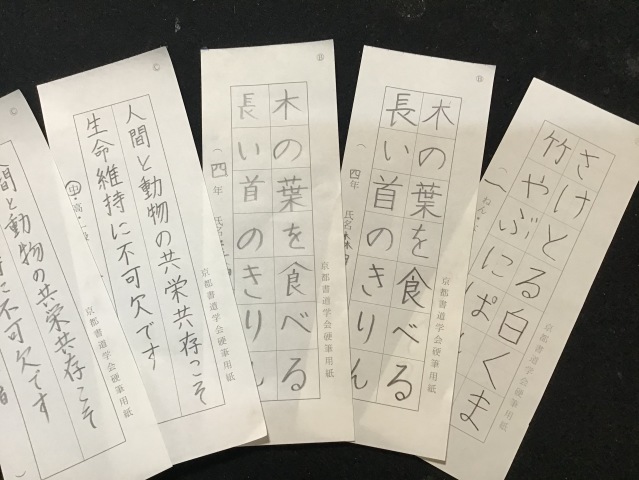 京都書道学会硬筆用紙
さけとる白くま
竹やぶにぱ
Ⓑ
京都書道学会硬筆用紙
木の葉を食べる
長い首のきりん
(四年 氏名
Ⓑ
京都書道学会硬筆用紙
木の葉を食べる
長い首のきりん
(四年 氏名
Ⓒ
京都書道学会硬筆用紙
人間と動物の共栄共存こそ
生命維持に不可欠です
中・高
Ⓒ
京都書道学会硬筆用紙
間と動物の共栄共存こそ
に不可欠です